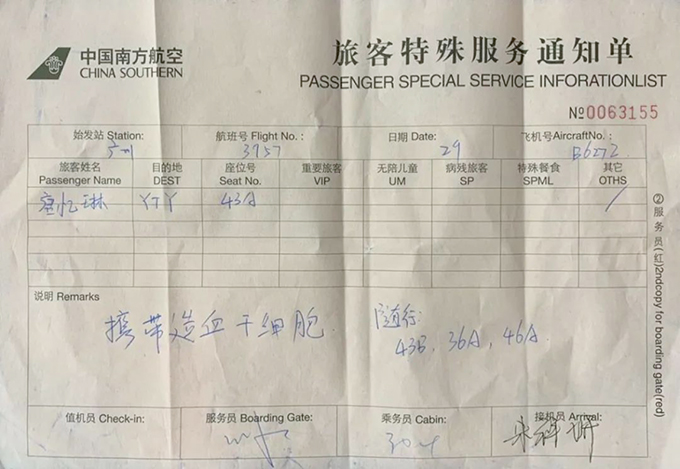 中国南方航空
CHINA SOUTHERN
旅客特殊服务通知单
PASSENGER SPECIAL SERVICE INFORATIONLIST
№0063155
始发站 Station: 航班号 Flight No.: 日期 Date: 飞机号AircraftNo.:
广州 3957 29 B6272
旅客姓名 目的地 座位号 重要旅客 无陪儿童 病残旅客 特殊餐食 其它
Passenger Name DEST Seat No. VIP UM SP SPML OTHS
琳 YTY 43A /
说明 Remarks
携带造血干细胞. 随行:
43B, 36A, 46A
值机员 Check-in: 服务员 Boarding Gate: 乘务员 Cabin: 接机员 Arrival:
②服务员(红)2ndcopy for boarding gate(red)